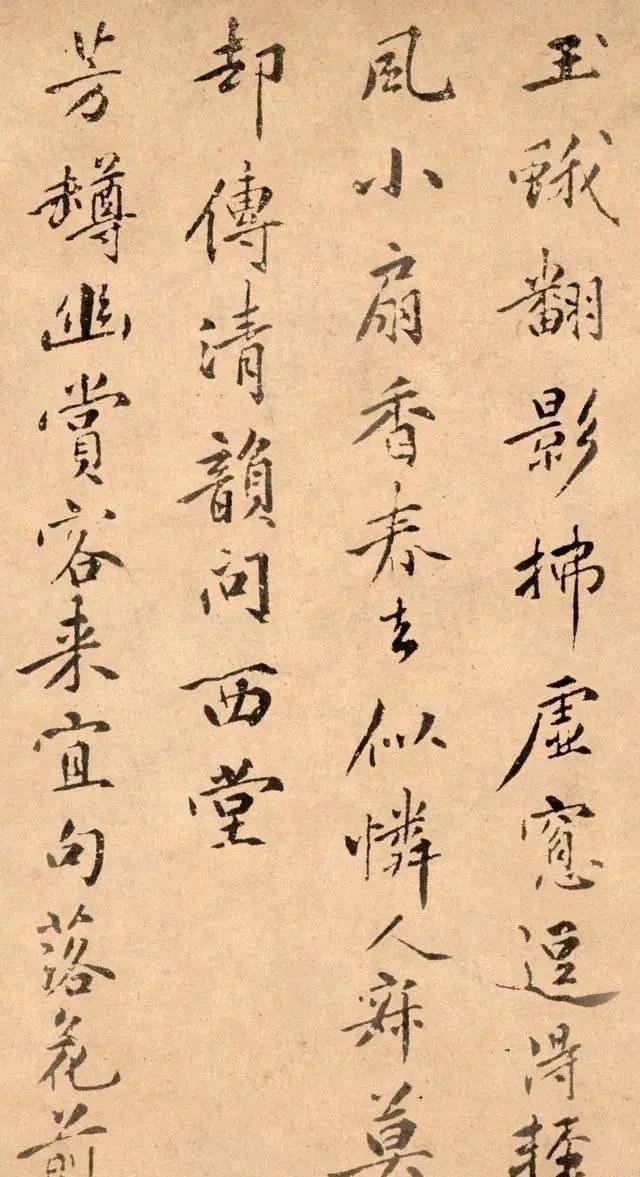 玉蛾翻影拂虛窗逗得輕
風小扇香春去似憐人寂莫
却傳清韻問西堂
芳樽幽賞客來宜句落花前